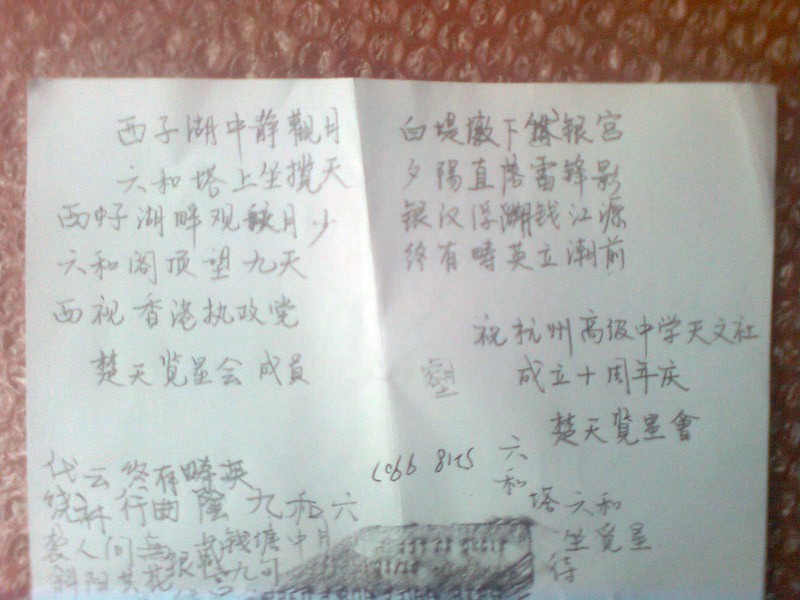 西子湖中静觀月
六和塔上坐揽天
西子湖畔观月少
六和阁顶望九天
西视香港执政党
楚天览星会成員
白堤墩下銀宮
夕陽直落雷锋影
银汉浮湖钱江源
终有疇英立潮前
祝杭州高级中学天文社
成立十周年庆
楚天覽星會
代云终有疇英
行曲陰九和六
袭人间 钱塘中月
斜阳共 九
六和
塔六和
坐览星
待